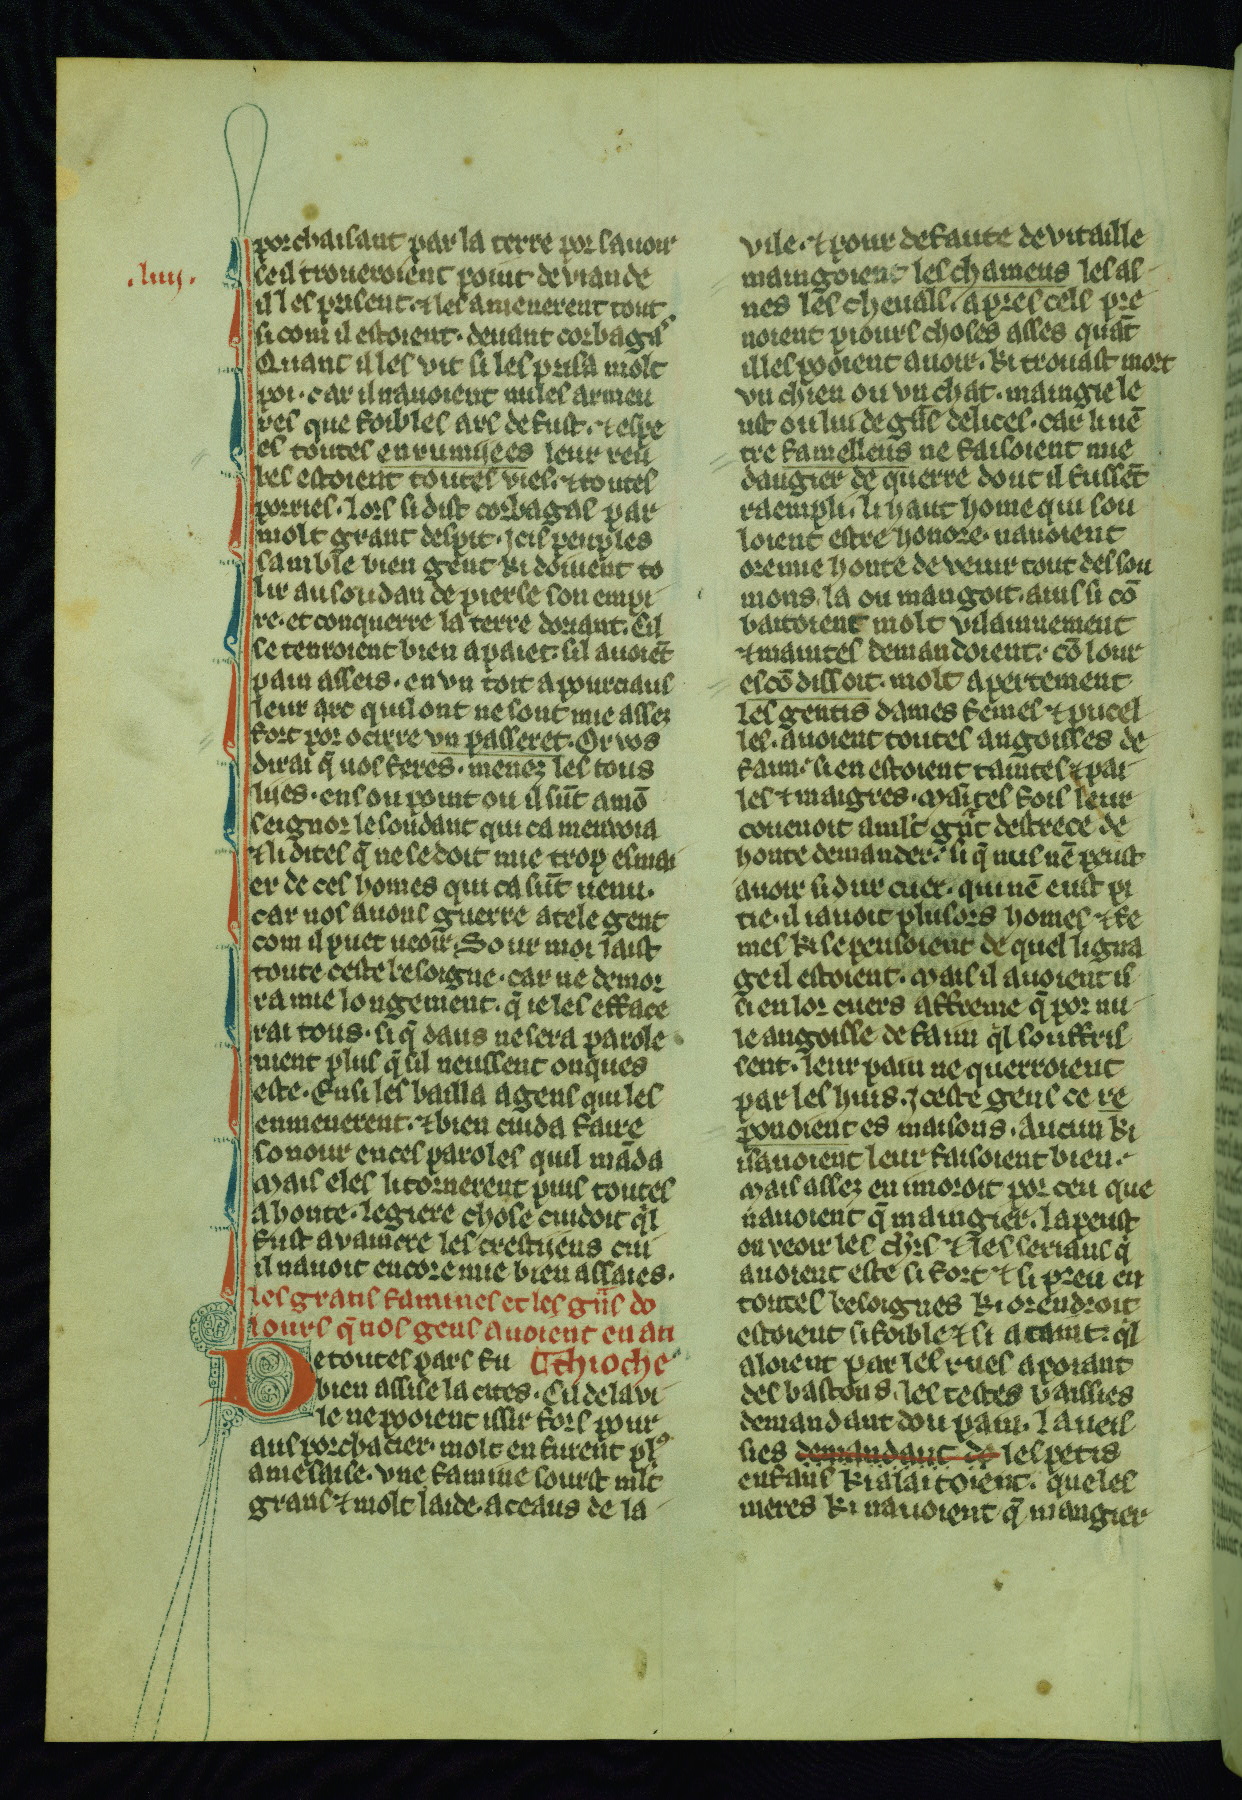 porchaisant par la terre por sauoir
.liiij.
se il troueroient point de viande
il les prisent. ⁊ les amenerent tout
si com il estoient. deuant corbagas
Quant il les vit si les prisa molt
poi. car il nauoient nules armeu
res que foibles ars de fust. ⁊ espe
es toutes enrunijees leur reu
bes estoient toutes vies. ⁊ toutes
porries. lors si dist corbagas par
molt grant despit. Jcis peuples
samble bien gent ki doiuent to
lir au soudan de pierse son empi
re. et conquerre la terre doriant. Cil
se tenroient bien a paiet. sil auoiēt
pain asseis. en vn toit a pourciaus
leur arc quil ont ne sont mie assez
fort por ocirre vn passeret. Or vos
dirai q̄ uos feres. menez les tous
lijes. en sou point ou il sūt a mō
seignor le soudant qui ca menuoia
⁊ li dites q̄ ne se doit mie trop esmai
er de ces homes qui ca sūt uenu.
car nos auons guerre a tele gent
com il puet ueoir. Sour moi laist
toute ceste besoigne. car ne demor
ra mie longement. q̄ ie les efface
rai tous. si q̄ dans ne sera parole
nient plus q̄ sil neussent onques
este. Ensi les bailla a gens qui les
enmenerent. ⁊ bien cuida faire
sonour en ces paroles quil māda
Mais eles li tornerent puis toutes
a honte. legiere chose cuidoit q̓l
fust a vaincre les crestijens cui
il nauoit encore mie bien assaies.
les grans famines et les gns̄ do
lours q̄ nos gens auoient en an
De toutes pars fu Tthioche
bien assise la cites. Cil de la vi
le ne pooient issir fors pour
aus porchacier. molt en furent pl9
a mesaise. vne famine sourst mlt̄
grans ⁊ molt laide. a ceaus de la
vile. ⁊ pour defaute de vitaille
maingoient les chameus les as
nes les cheuals. apres cels pre
noient piours choses asses quāt
il les pooient auoir. ki trouast mort
vn chien ou vn chat. maingie le
ust ou lui de gns̄ delices. car li uē
tre familleus ne faisoient mie
daugier de querre dont il fussēt
raempli. li haut home qui sou
loient estre honore. nauoient
ore mie honte de venir tout des sou
mons. la ou mangoit. ains si cō
batoient molt vilainnement
⁊ maintes demandoient. cō lour
escōdissoit. molt apertement
les gentis dames femes ⁊ pucel
les. auoient toutes angoisses de
faim. si en estoient taintes ⁊ pai
les ⁊ maigres. Maītes fois leur
couenoit a mlt̄ gn̄t destrece de
honte demander. si q̄ nus nē peust
auoir si dur cuer. qui nē eust pi
tie. il iauoit plusors homes ⁊ fe
mes ki se pensoient de quel ligna
ge il estoient. Mais il auoient is
si en lor cuers affreme q̄ por nu
le angoisse de faim q̓l souffris
sent. leur pain ne querroient
par les huis. Jceste gens ce re
ponoient es maisons. Aucun ki
isauoient leur faisoient bien.
Mais assez en moroit por ceu que
nauoient q̄ maingier. la peust
on veoir les ch̓rs ⁊ les serians q̄
auoient este si fort ⁊ si preu en
toutes besoignes ki orendroit
estoient si foible ⁊ si ataint. q̓l
aloient par les rues apoiant
des bastons. les testes baissies
demandant dou pain. laueis
sies demandant do les petis
enfans ki alaitoient. que les
meres ki nauoient q̄ mangier